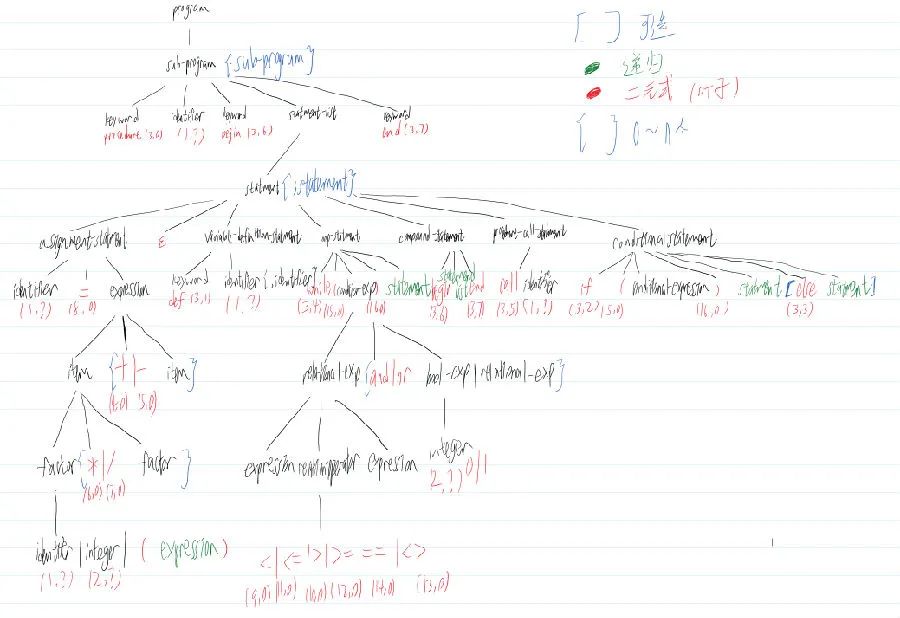 program
[ ] 可选
sub-program {sub-program}
递归
二元式 (叶子)
{ } 0~n个
keyword identifier keyword statement-list keyword
procedure (3,6) (1,?) begin (3,6) end (3,7)
statement {;statement}
assignment-statement ε variable-definition-statement compound-statement procedure-call-statement conditional statement
identifier = expression keyword identifier {,identifier} while (condition-exp) statement begin statement list end call identifier if ( conditional-expression ) statement [else statement]
(1,?) def (1,?) (3,6) (3,7) (3,5) (1,?) (3,2) (15,0) (16,0) (3,3)
item {+|- item}
relational-exp {and|or bool-exp|relational-exp}
factor {*|/ factor}
expression expression integer
0|1
identifier|integer|(expression)
(1,?) (2,?)
<|<=|>|>= ==|<>
(9,0) (11,0) (10,0) (12,0) (14,0) (13,0)